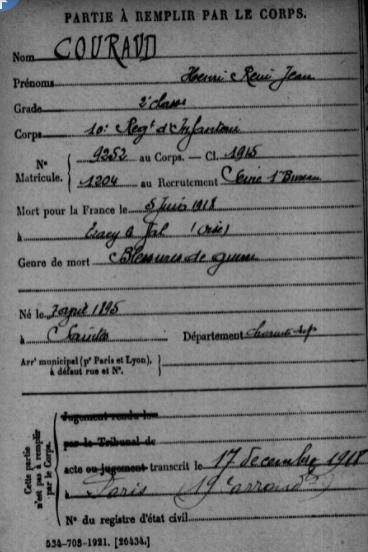 PARTIE À REMPLIR PAR LE CORPS.
Nom COURAUD
Prénoms Henri René Jean
Grade 2e classe
Corps 10e Regt d'Infanterie
N° Matricule. { 9252 au Corps. — Cl. 1915
1204 au Recrutement Seine 1er Bureau
Mort pour la France le 5 Juin 1918
à Tracy le Val (Oise)
Genre de mort Blessures de guerre
Né le 7 1895
à Saintes Département Charente Infre
Arrt municipal (pr Paris et Lyon), à défaut rue et N°.
Cette partie n'est pas à remplir par le Corps.
Jugement rendu le
par le Tribunal de
acte ou jugement transcrit le 17 décembre 1918
à Paris (19e arrondt)
N° du registre d'état civil
534-708-1921. [26434.]